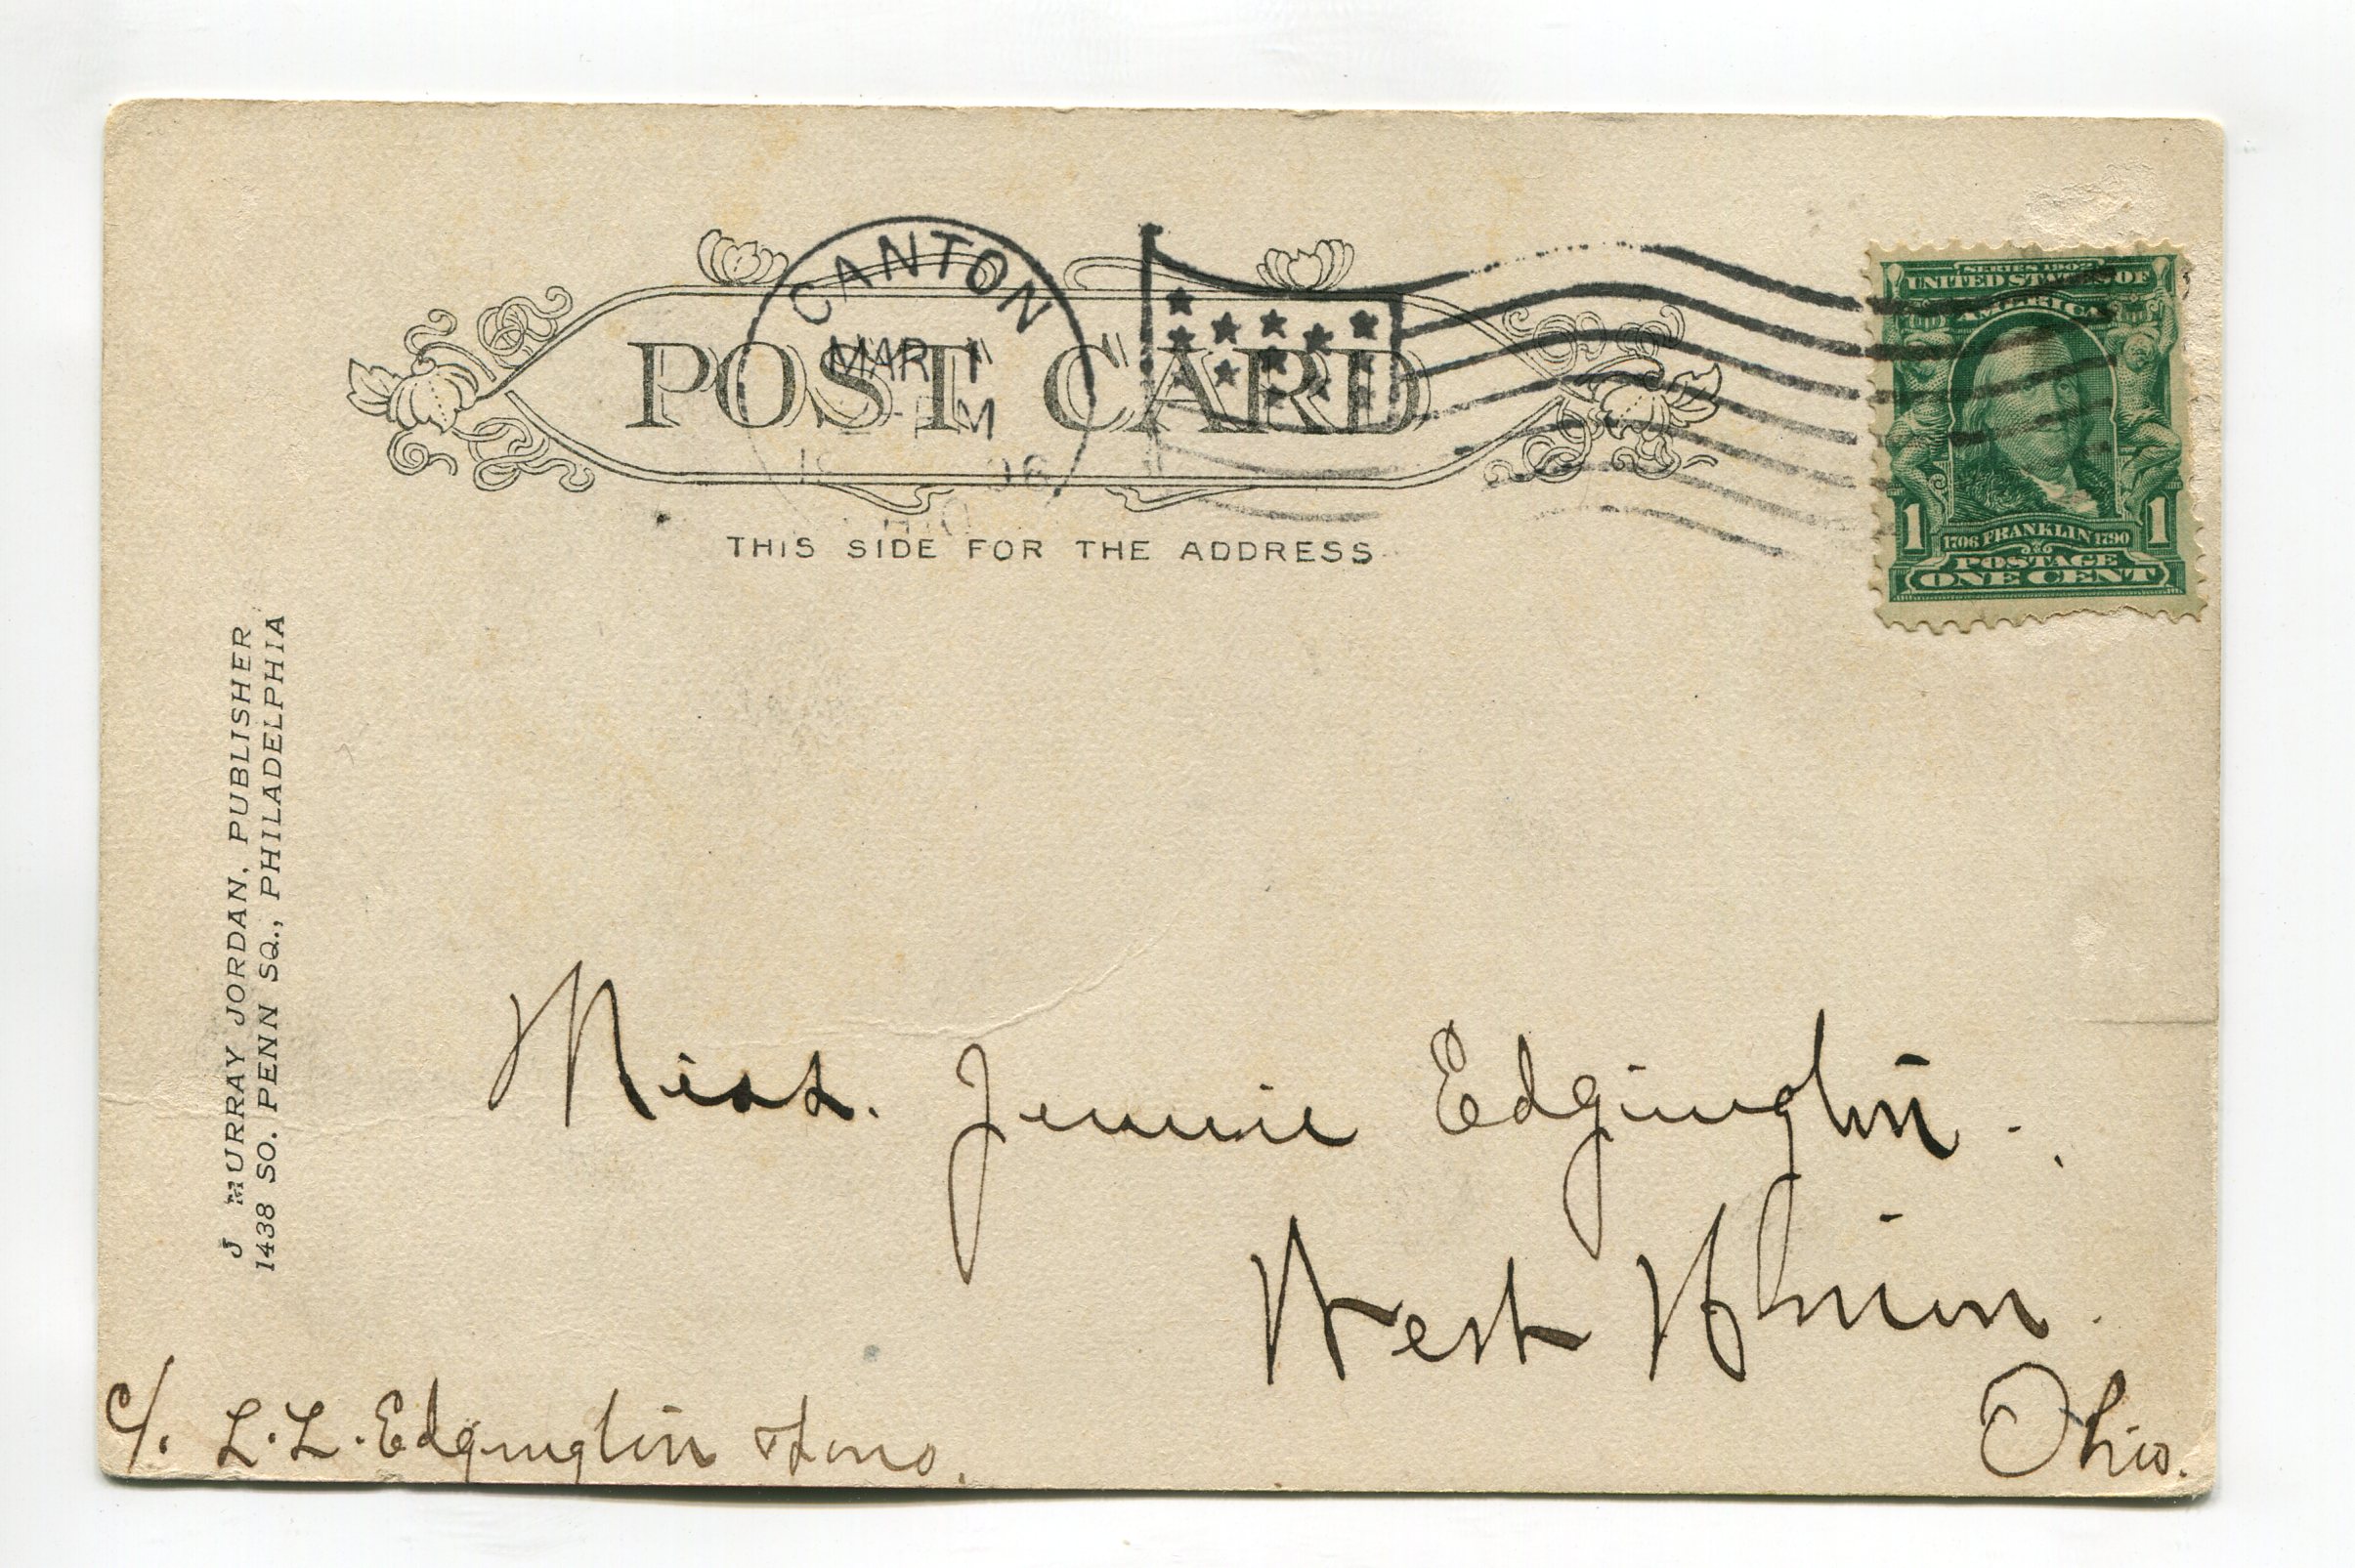 POST CARD
CANTON
MAR
PM
06
THIS SIDE FOR THE ADDRESS
SERIES 1902
UNITED STATES OF
AMERICA
1 1706 FRANKLIN 1790 1
POSTAGE
ONE CENT
J MURRAY JORDAN, PUBLISHER
1438 SO. PENN SQ., PHILADELPHIA
Miss. Jennie Edgington.
West Union.
Ohio.
c/. L.L. Edgington & Sons.